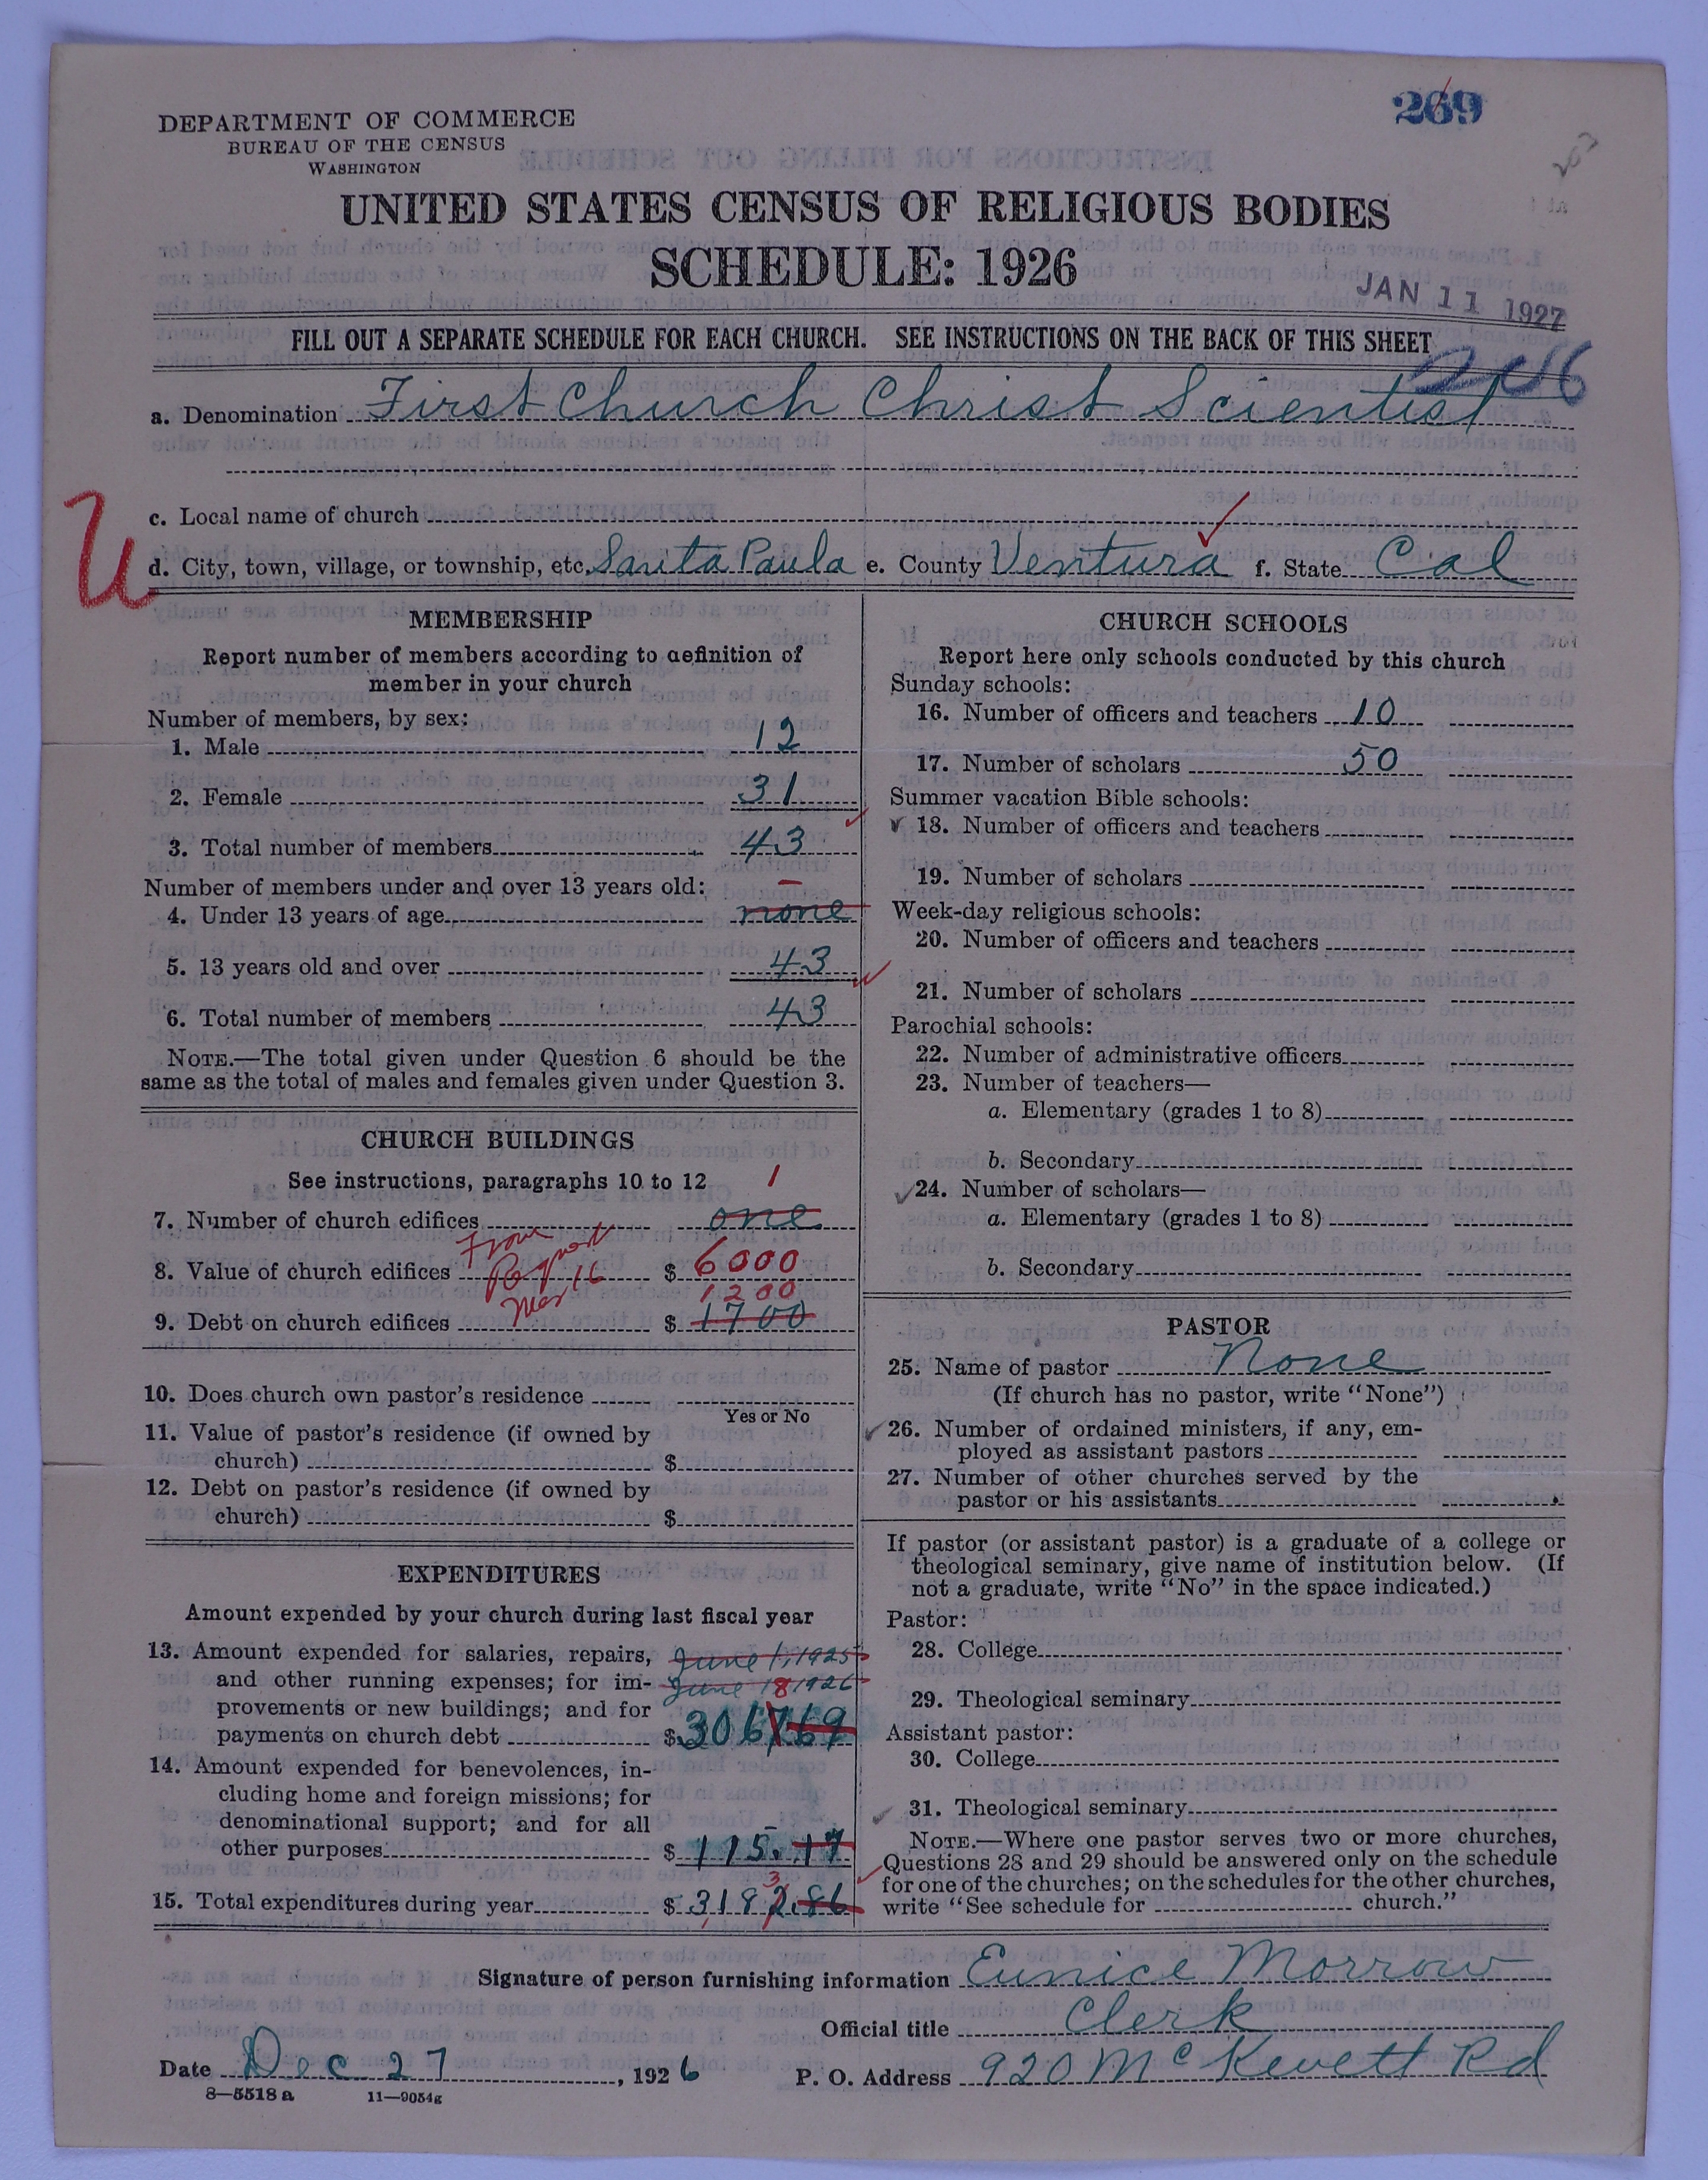 269
DEPARTMENT OF COMMERCE
BUREAU OF THE CENSUS
WASHINGTON
UNITED STATES CENSUS OF RELIGIOUS BODIES
SCHEDULE: 1926
JAN 11 1927
FILL OUT A SEPARATE SCHEDULE FOR EACH CHURCH. SEE INSTRUCTIONS ON THE BACK OF THIS SHEET
a. Denomination First Church Christ Scientist
c. Local name of church
U
d. City, town, village, or township, etc. Santa Paula e. County Ventura f. State Cal
MEMBERSHIP
Report number of members according to definition of
member in your church
Number of members, by sex:
1. Male 12
2. Female 31
3. Total number of members 43
Number of members under and over 13 years old: –
4. Under 13 years of age none
5. 13 years old and over 43
6. Total number of members 43
NOTE.—The total given under Question 6 should be the
same as the total of males and females given under Question 3.
CHURCH BUILDINGS
See instructions, paragraphs 10 to 12 1
7. Number of church edifices one
From
8. Value of church edifices $ 6000
Report 16
1200
9. Debt on church edifices $ 1700
10. Does church own pastor's residence
Yes or No
11. Value of pastor's residence (if owned by
church) $
12. Debt on pastor's residence (if owned by
church) $
EXPENDITURES
Amount expended by your church during last fiscal year
13. Amount expended for salaries, repairs, June 1, 1925
and other running expenses; for im- June 1 1926
provements or new buildings; and for 8
payments on church debt $ 3067.69
14. Amount expended for benevolences, in-
cluding home and foreign missions; for
denominational support; and for all
other purposes $ 115.17
3
15. Total expenditures during year $ 3182.86
CHURCH SCHOOLS
Report here only schools conducted by this church
Sunday schools:
16. Number of officers and teachers 10
17. Number of scholars 50
Summer vacation Bible schools:
18. Number of officers and teachers
19. Number of scholars
Week-day religious schools:
20. Number of officers and teachers
21. Number of scholars
Parochial schools:
22. Number of administrative officers
23. Number of teachers—
a. Elementary (grades 1 to 8)
b. Secondary
24. Number of scholars—
a. Elementary (grades 1 to 8)
b. Secondary
PASTOR
25. Name of pastor None
(If church has no pastor, write "None")
26. Number of ordained ministers, if any, em-
ployed as assistant pastors
27. Number of other churches served by the
pastor or his assistants
If pastor (or assistant pastor) is a graduate of a college or
theological seminary, give name of institution below. (If
not a graduate, write "No" in the space indicated.)
Pastor:
28. College
29. Theological seminary
Assistant pastor:
30. College
31. Theological seminary
NOTE.—Where one pastor serves two or more churches,
Questions 28 and 29 should be answered only on the schedule
for one of the churches; on the schedules for the other churches,
write "See schedule for church."
Signature of person furnishing information Eunice Morrow
Official title Clerk
Date Dec 27, 1926 P. O. Address 920 McKevett Rd
8—5518 a 11—9054g